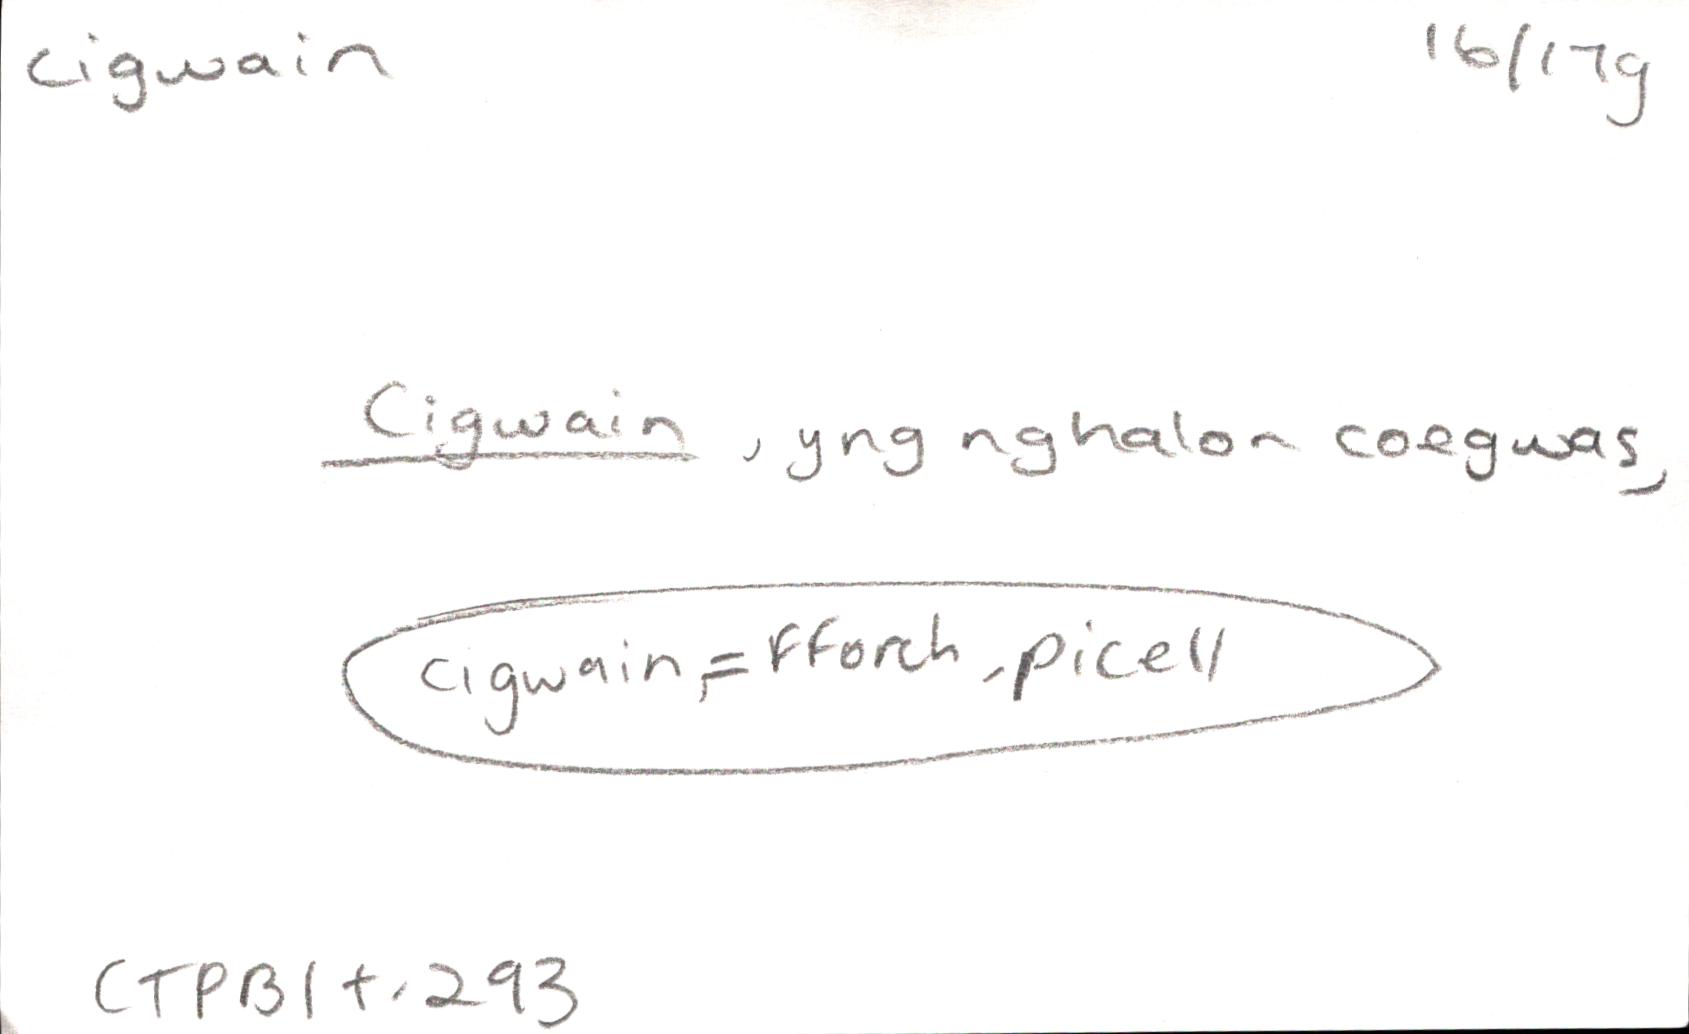 cigwain 16/17g
Cigwain, yng nghalon coegwas,
cigwain, = fforch, picell
CTPB1 t. 293